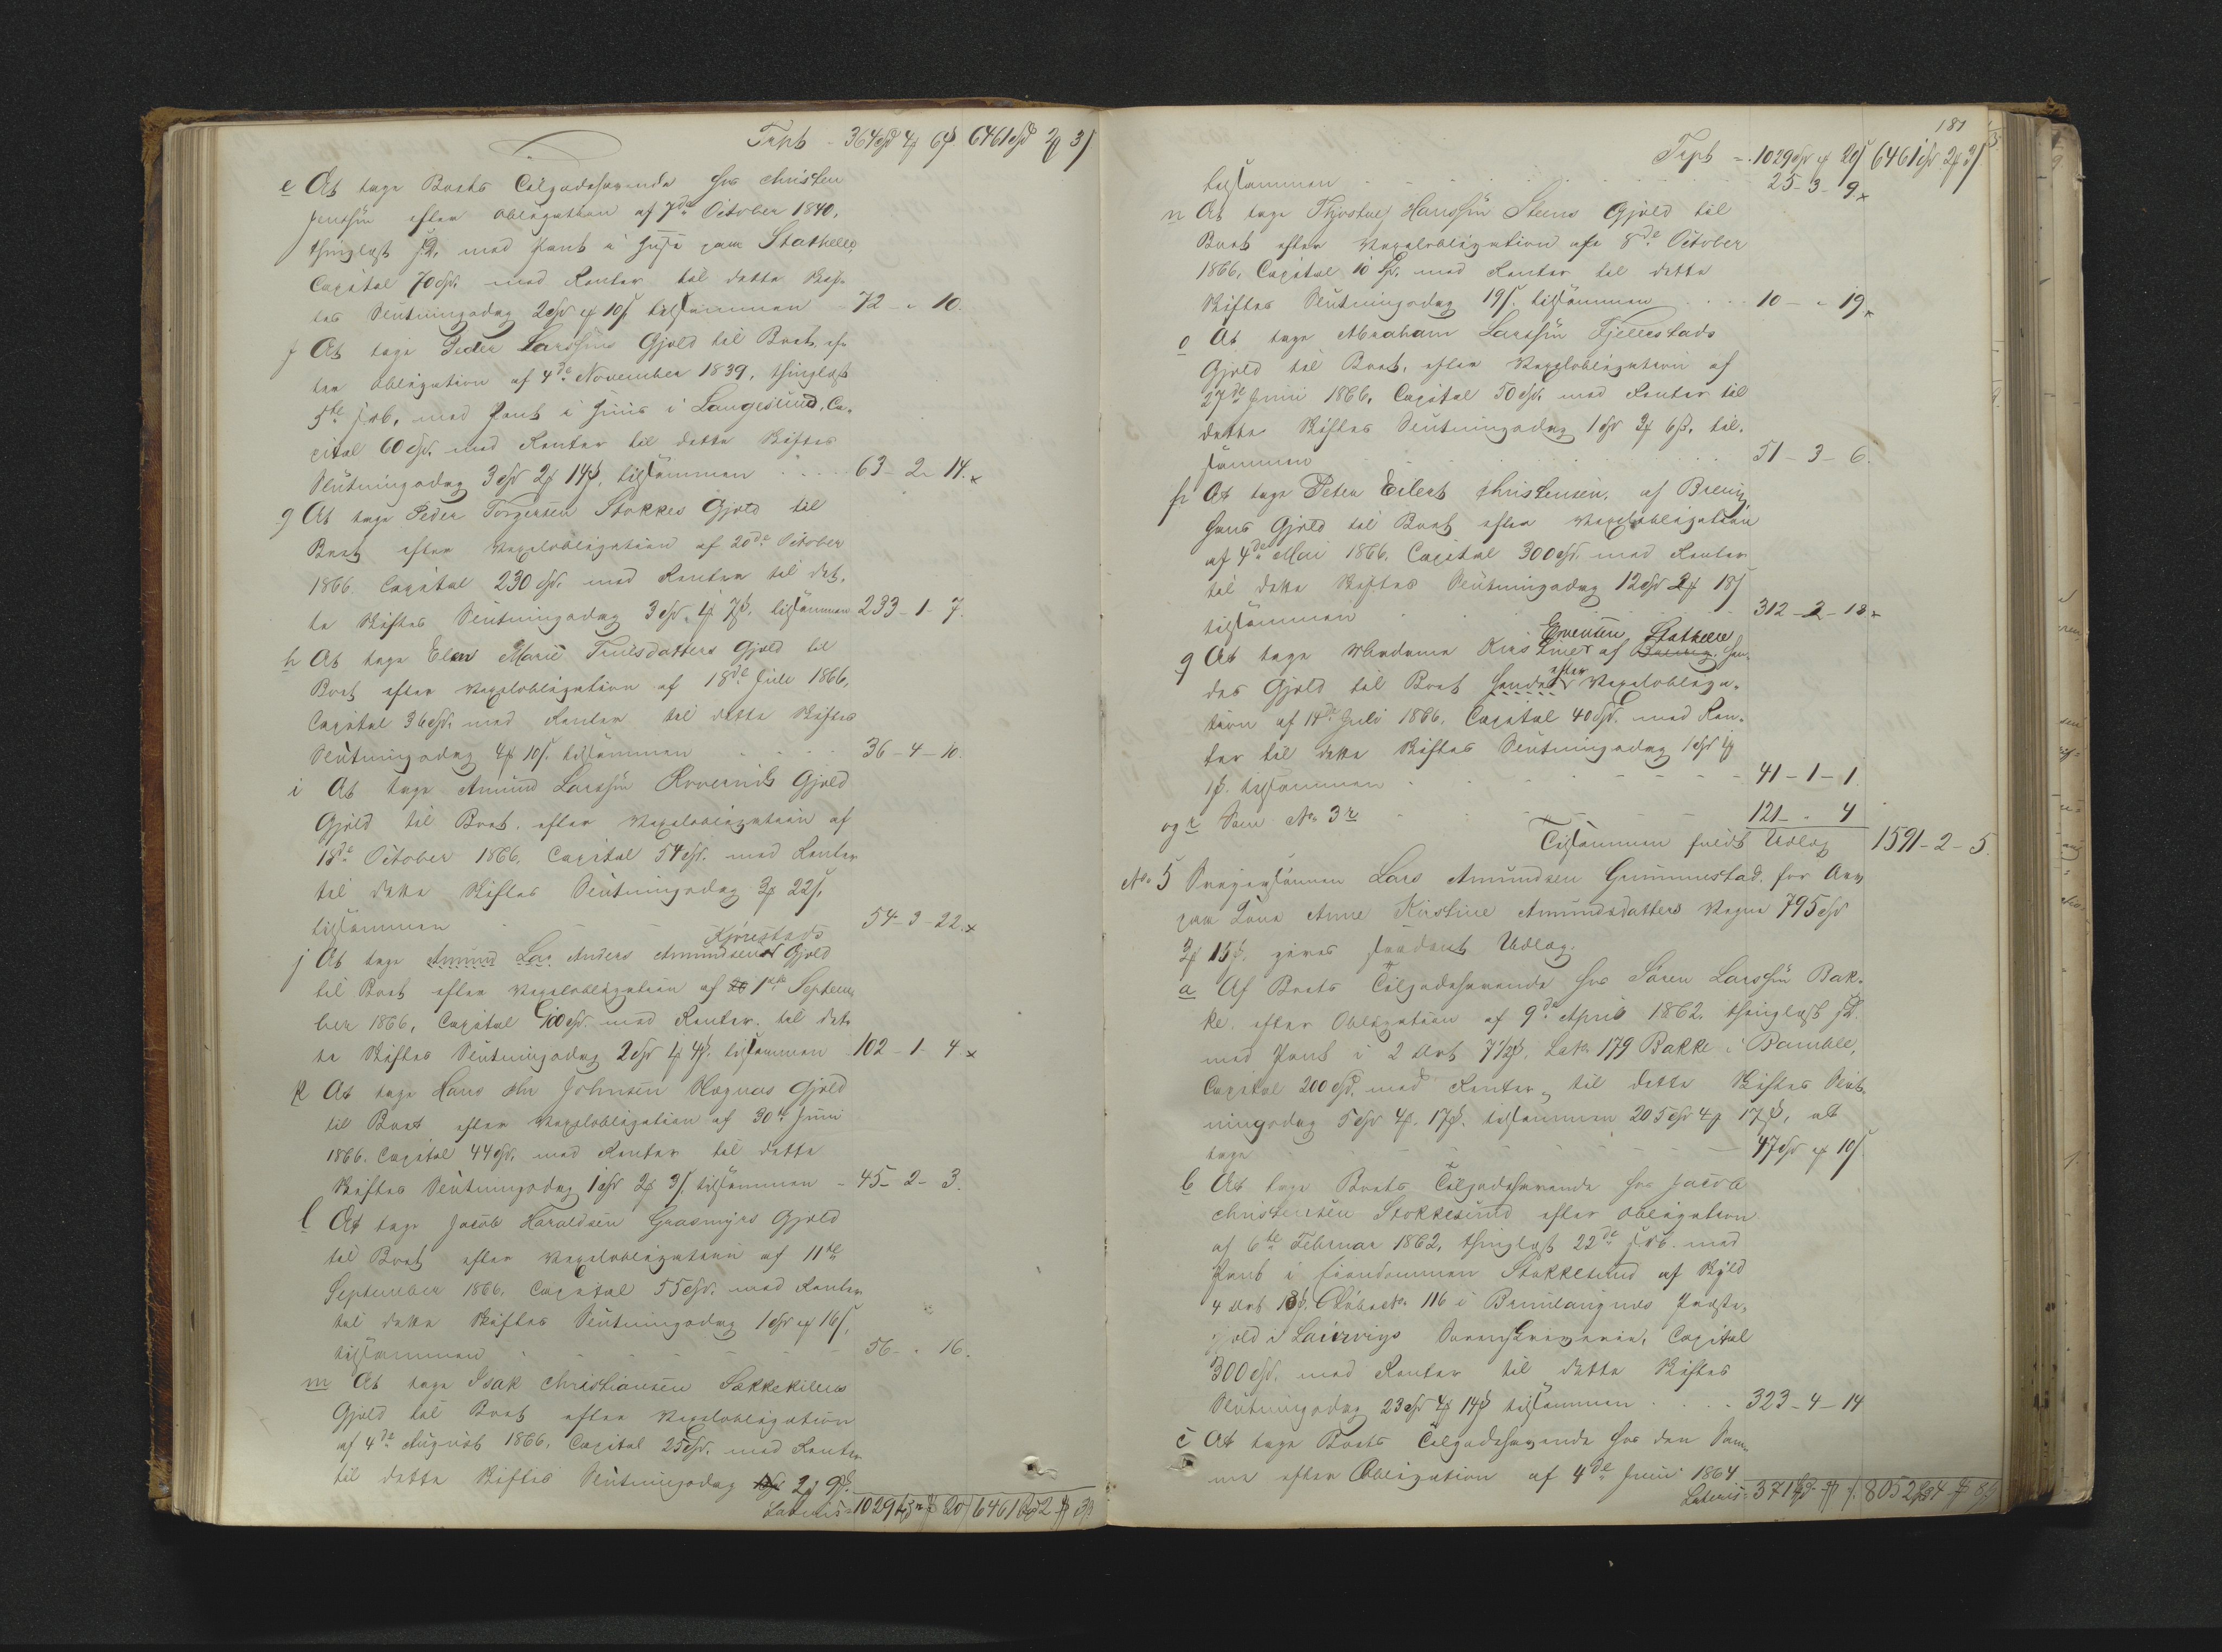 Trpt 364 Spd 4 ¤ 6 ß 6461 Spd 2 ¤ 3 ß
e At tage Boets Tilgodehavende hos Christen
Jenssøn efter Obligation af 7de October 1840,
thinglæst s. D. med Pant i Huus paa Stathelle,
Capital 70 Spd. med Renter til dette Skif-
tes Slutningsdag 2 Spd ¤ 10 ß tilsammen 72 - " 10.
f At tage Peder Larssøns Gjæld til Boet, ef-
ter Obligation af 4de November 1839, thinglæst
5te s. M. med Pant i Huus i Langesund, Ca-
pital 60 Spd. med Renter til dette Skiftes
Slutningsdag 3 Spd 2 ¤ 14 ß, tilsammen 63 - 2 - 14. x
g At tage Peder Torgersen Stokkes Gjæld til
Boet efter Vexelobligation af 20de October
1866. Capital 230 Spd. med Renter til det-
te Skiftes Slutningsdag 3 Spd. 1 ¤ 7 ß. tilsammen 233 - 1 - 7.
h At tage Elen Marie Truelsdatters Gjæld til
Boet efter Vexelobligation af 18de Juli 1866,
Capital 36 Spd. med Renter til dette Skiftes
Slutningsdag 4 ¤ 10 ß. tilsammen 36 - 4 - 10.
i At tage Amund Larssøn Gjæld
Gjæld til Boet, efter Vexelobligation af
18de October 1866, Capital 54 Spd. med Renter
til dette Skiftes Slutningsdag 3 ¤ 22 ß,
tilsammen 54 - 3 - 22. x
Kjørstads
j At tage Amund Lar Anders Amundsens Gjæld
til Boet efter Vexelobligation af 1ste Septem-
ber 1866, Capital 100 Spd. med Renter til det-
te Skiftes Slutningsdag 2 Spd 1 ¤ 4 ß. tilsammen 102 - 1 - 4. x
k At tage Hans Johnsen Gjæld
til Boet efter Vexelobligation af 30te Juni
1866. Capital 44 Spd. med Renter til dette
Skiftes Slutningsdag 1 Spd 2 ¤ 3 ß, tilsammen - 45 - 2 - 3.
l At tage Jacob Haraldsen Grasmyrs Gjæld
til Boet efter Vexelobligation af 11te
September 1866. Capital 55 Spd. med Renter
til dette Skiftes Slutningsdag 1 Spd ¤ 16 ß,
tilsammen 56 - " 16.
m At tage Isak Christiansen
Gjæld til Boet efter Vexelobligation
af 4de August 1866, Capital 25 Spd. med Renter
til dette Skiftes Slutningsdag 3 ¤ 9 ß.
Lateris = 1029 Spd " ¤ 20 ß 6461 Spd 2 ¤ 3 ß
181
Trpt = 1029 Spd ¤ 20 ß 6461 Spd 2 ¤ 3 ß
tilsammen 25 - 3 - 9. x
n At tage Thjostul Hanssøn Steens Gjæld til
Boet efter Vexelobligation af 8de October
1866, Capital 10 Spd. med Renter til dette
Skiftes Slutningsdag 19 ß. tilsammen 10 - " 19. x
o At tage Abraham Larssøn Fjellestads
Gjæld til Boet, efter Vexelobligation af
27de Juni 1866, Capital 50 Spd. med Renter til
dette Skiftes Slutningsdag 1 Spd 3 ¤ 6 ß. til-
sammen 51 - 3 - 6.
p At tage Peter Eilert Christensen, af Brevig
hans Gjæld til Boet efter Vexelobligation
af 4de Mai 1866. Capital 300 Spd. med Renter
til dette Skiftes Slutningsdag 12 Spd 2 ¤ 18 ß
tilsammen 312 - 2 - 18. x
Evensen Stathelle
q At tage Madame Kirstine af Brevig, hen-
des Gjæld til Boet hendes efter Vexelobliga-
tion af 14de Juli 1866. Capital 40 Spd. med Ren-
ter til dette Skiftes Slutningsdag 1 Spd 1 ¤
1 ß. tilsammen 41 - 1 - 1
og r Som No 3 r 121 - " 4
Tilsammen fuldt Udlæg 1591 - 2 - 5.
No 5 Lars Amundsen Grummestad. for Arv
paa Kone Anne Kirstine Amundsdatters Vegne 795 Spd
3 ¤ 15 ß, gives saadant Udlæg.
a Af Boets Tilgodehavende hos Søren Larssøn Bak-
ke, efter Obligation af 9de April 1862, thinglæst s. D.
med Pant i 2 Ort 7 1/2 ß, Lab. 179 Bakke i Bamble,
Capital 200 Spd. med Renter, til dette Skiftes Slut-
ningsdag 5 Spd 4 ¤ 17 ß. tilsammen 205 Spd 4 ¤ 17 ß, at
tage 47 Spd ¤ 10 ß
b At tage Boets Tilgodehavende hos Jacob
Christensen Stokkesund efter Obligation
af 6te Februar 1862, thinglæst 22de s. M. med
Pant i Eiendommen Stokkesund af Skyld
4 Ort 18 ß. 116 i Brunlangnæs Præste-
gjeld i Laurvigs Sorenskriverie, Capital
300 Spd, med Renter til dette Skiftes
Slutningsdag 23 Spd 4 ¤ 14 ß tilsammen 323 - 4 - 14
c At tage Boets Tilgodehavende hos den Sam-
me efter Obligation af 4de Juni 1864
Lateris = 371 Spd " ¤ " ß 8052 Spd 4 ¤ 8 ß